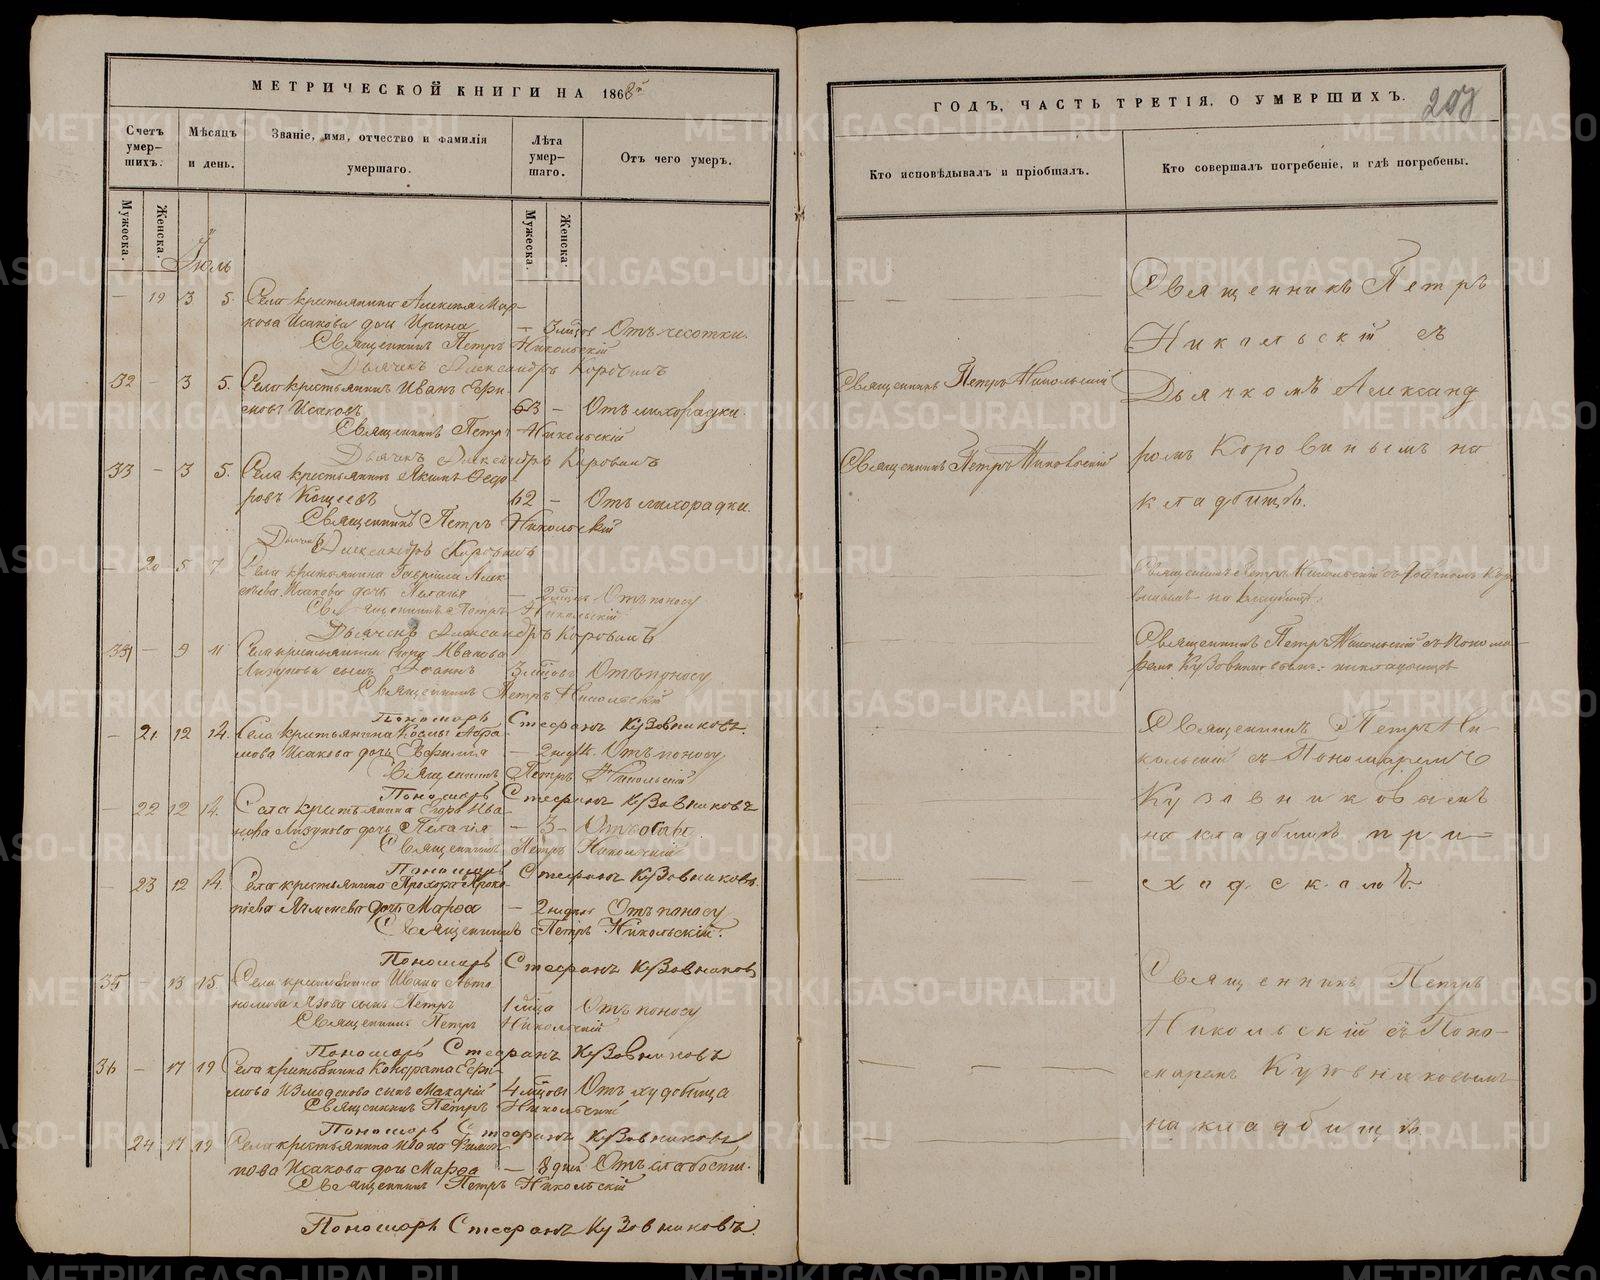 МЕТРИЧЕСКОЙ КНИГИ НА 1868й
Счетъ умер-шихъ.
Мѣсяцъ и день.
Званіе, имя, отчество и фамилія умершаго.
Лѣта умер-шаго.
Отъ чего умеръ.
Мужеска.
Женска.
Мужеска.
Женска.
Іюль
— 19 3 5. Села крестьянина Алексѣя Мар-
кова Исакова дочь Ирина — 3 мѣсяц. Отъ чесотки.
Священникъ Петръ Никольскій
Дьячекъ Александръ Коровинъ
32 — 3 5. Села крестьянинъ Иванъ Ефи-
мовъ Исаковъ 63 — Отъ лихорадки.
Священникъ Петръ Никольскій
Дьячекъ Александръ Коровинъ
33 — 3 5. Села крестьянинъ Якимъ Ѳедо-
ровъ Кощеевъ 62 — Отъ лихорадки.
Священникъ Петръ Никольскій
Дьячекъ Александръ Коровинъ
20 5 7 Села крестьянина Гавріила Алек-
сѣева Исакова дочь Пелагія — Отъ поносу
Священникъ Петръ Никольскій
Дьячекъ Александръ Коровинъ
34 — 9 11 Села крестьянина Егора Иванова
Лизунова сынъ Іоаннъ 3 мѣсцовъ Отъ поносу
Священникъ Петръ Никольскій
Пономарь Стефанъ Кузовниковъ.
— 21 12 14. Села крестьянина Космы Абра-
мова Исакова дочь — 2 нед. Отъ поносу
Священникъ Петръ Никольскій
Пономарь Стефанъ Кузовниковъ
— 22 12 14. Села крестьянина Егора Ива-
нова Лизунова дочь Пелагія — 3 — Отъ оспы
Священникъ Петръ Никольскій
Пономарь Стефанъ Кузовниковъ.
— 23 12 14. Села крестьянина Прохора Проко-
піева дочь Марѳа — 2 недѣл. Отъ поносу
Священникъ Петръ Никольскій.
Пономарь Стефанъ Кузовниковъ
35 — 13 15. Села крестьянина Ивана Авто-
номова сынъ Петръ 1 мѣсца Отъ поносу
Священникъ Петръ Никольскій
Пономарь Стефанъ Кузовниковъ
36 — 17 19 Села крестьянина Кондрата Ефи-
мова Измоденова сынъ Макарій 4 мѣсцовъ Отъ худобища
Священникъ Петръ Никольскій
Пономарь Стефанъ Кузовниковъ
24 17 19 Села крестьянина Ивана Филип-
пова Исакова дочь Марѳа — 8 дней Отъ слабости.
Священникъ Петръ Никольскій
Пономарь Стефанъ Кузовниковъ.
ГОДЪ, ЧАСТЬ ТРЕТІЯ, О УМЕРШИХЪ.
208
Кто исповѣдывалъ и пріобщалъ.
Кто совершалъ погребеніе, и гдѣ погребены.
Священникъ Петръ Никольскій
Священникъ Петръ Никольскій
Священникъ Петръ
Никольскій съ
Дьячкомъ Александ
ромъ Коровинымъ на
кладбищѣ.
Священникъ Петръ Никольскій съ Дьячкомъ Коро-
винымъ на кладбищѣ.
Священникъ Петръ Никольскій съ Понома-
ремъ Кузовниковымъ на кладбищѣ
Священникъ Петръ Ни-
кольскій съ Пономаремъ
Кузовниковымъ
на кладбищѣ при-
ходскомъ.
Священникъ Петръ
Никольскій съ Поно-
маремъ Кузовниковымъ
на кладбищѣ.
METRIKI.GASO-URAL.RU